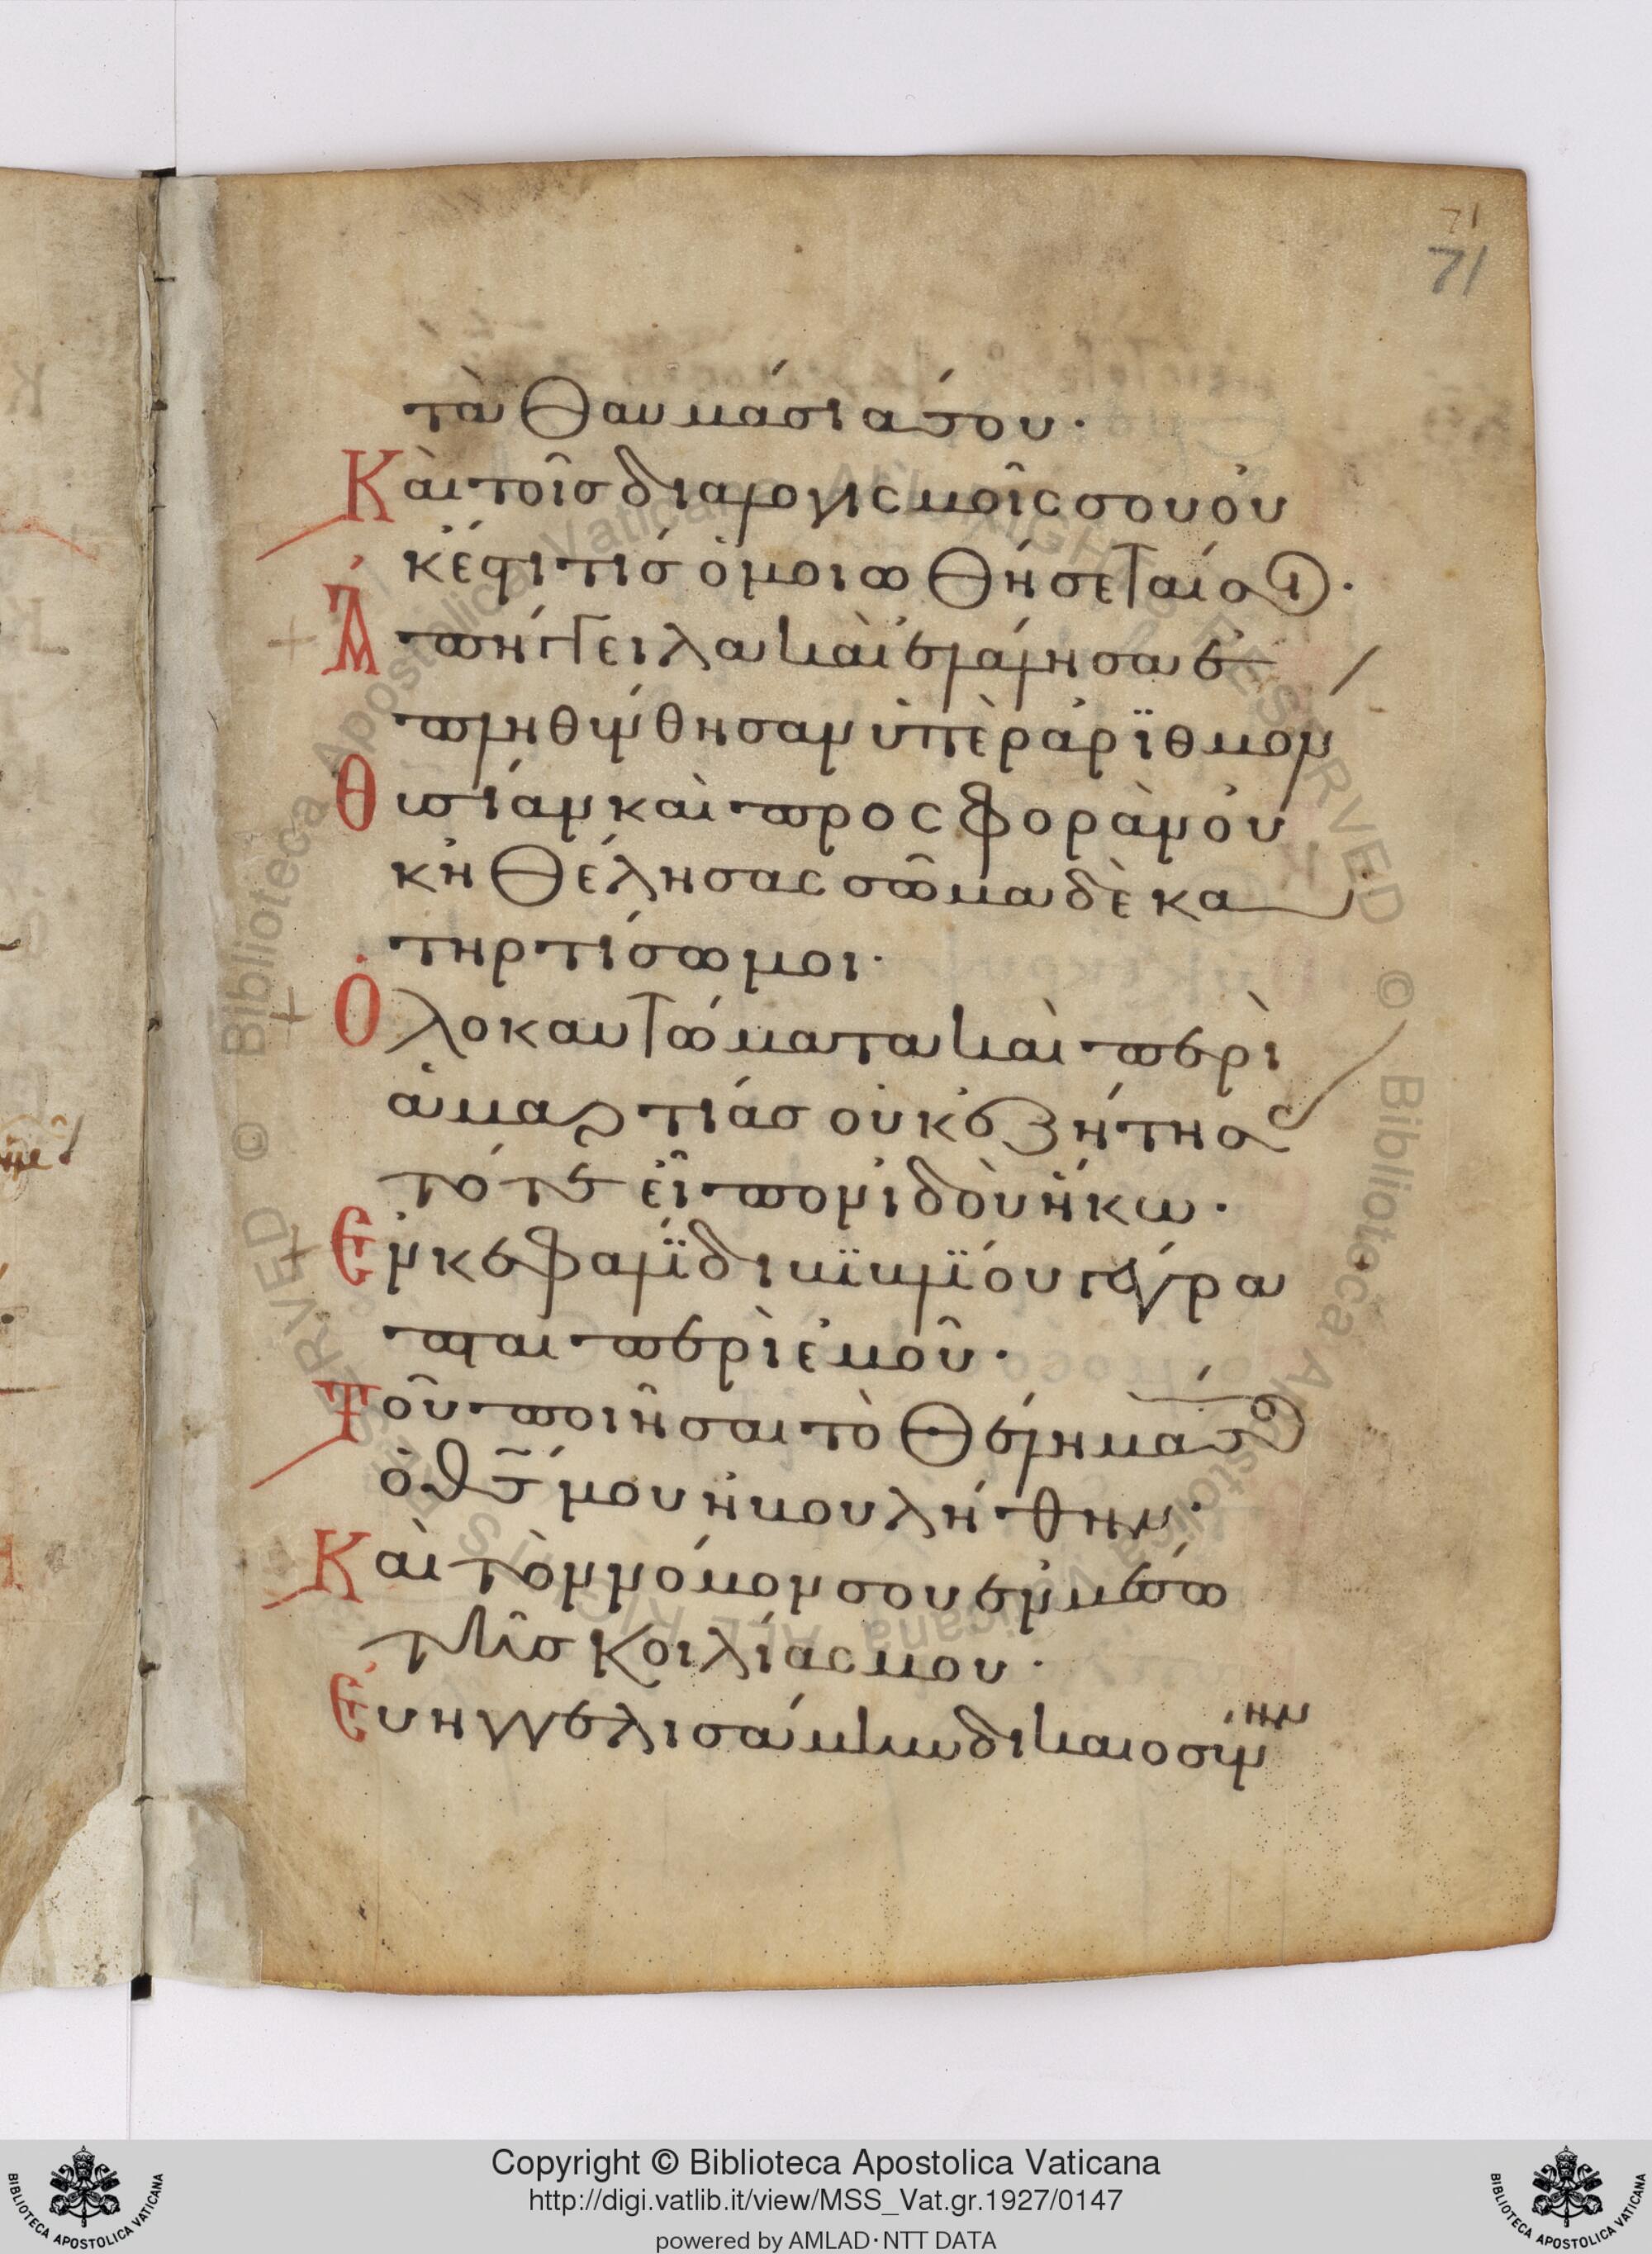 71
71
τὰ θαυμάσιά σου·
Καὶ τοῖς διαλογισμοῖς σου οὐ
κ ἔστι τίς ὁμοιωθήσεταί σοι·
Ἀπήγγειλα καὶ ἐλάλησα ἐ
πληθύνθησαν ὑπὲρ ἀρϊθμον
Θυσίαν καὶ προσφορὰν οὐ
κ ἠθέλησας σῶμα δὲ κα
τηρτίσω μοι·
Ὁλοκαυτώματα καὶ περὶ
ἁμαρτίας οὐκ ἐζήτησας
τότε εἶπον ἰδοὺ ἥκω·
Ἐν κεφαλϊδι βιβλϊου γέγρα
πται περὶ ἐμοῦ·
Τοῦ ποιῆσαι τὸ θέλημά σου
ὁ θς μου ἠβουλήθην·
Καὶ τὸν νόμον σου ἐν μέσω
τῆς κοιλίας μου·
Εὐηγγελισάμην δικαιοσύνην
Copyright © Biblioteca Apostolica Vaticana
http://digi.vatlib.it/view/MSS_Vat.gr.1927/0147
powered by AMLAD·NTT DATA
BIBLIOTECA APOSTOLICA VATICANA
BIBLIOTECA APOSTOLICA VATICANA